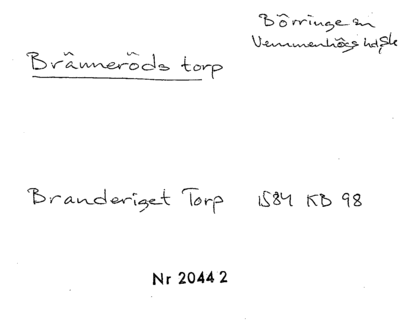 Börringe sn
Vemmenhögs hd, Sk
Bränneröds torp
Branderiget Torp 1584 KB 98
Nr 20442